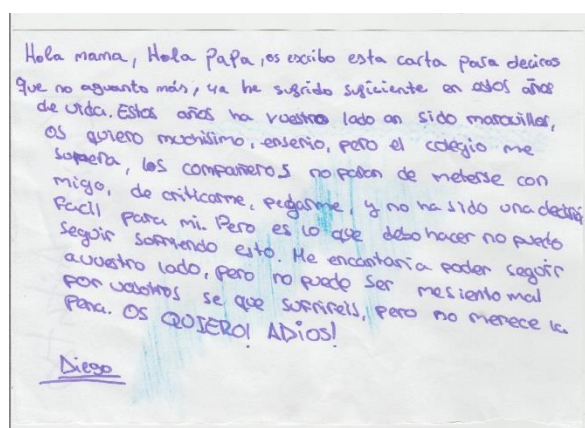 Hola mama, Hola Papa, os escribo esta carta para deciros
que no aguanto más, ya he sufrido suficiente en estos años
de vida. Estos años ha vuestro lado an sido maravillos,
os quiero muchisimo, enserio, pero el colegio me
supera, los compañeros no paran de meterse con
migo, de criticarme, pegarme, y no ha sido una decisión
facil para mi. Pero es lo que debo hacer no puedo
seguir sufriendo esto. Me encantaria poder seguir
avuestro lado, pero no puede ser me siento mal
por vosotros se que sufrireis, pero no merece la
pena. OS QUIERO! ADIOS!
Diego